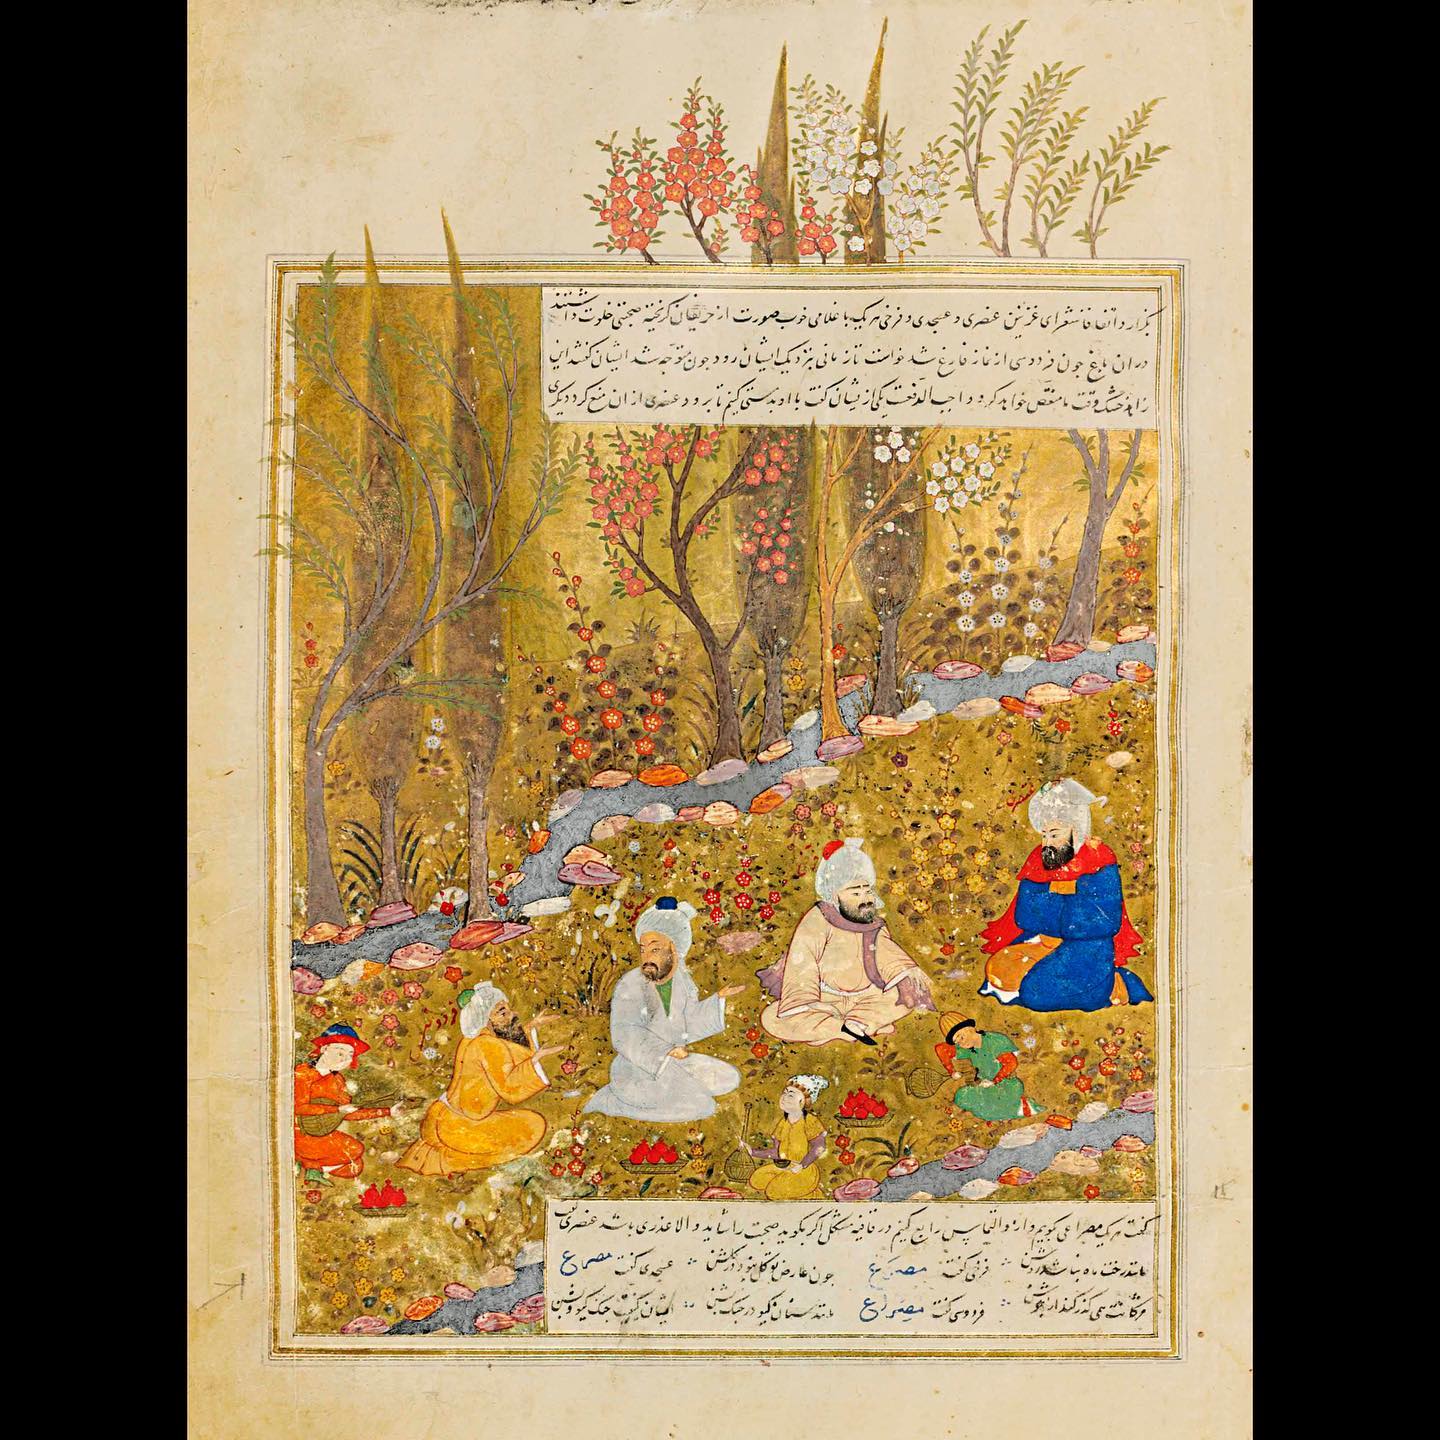 بگزارد اتفاقا شعرای غزنین عنصری و عسجدی و فرخی هر یک با غلامی خوب صورت از حریفان گریخته صحبتی خلوت داشتند
دران باغ چون فردوسی از نماز فارغ شد خواست تا زمانی نزدیک ایشان رود چون متوجه شد ایشان گفتند این
زاهد خشک وقت ما منغص خواهد کرد و اجب الدفعت یکی از ایشان گفت با او بدمستی کنیم تا برود عنصری از ان منع کرد دیگری
عنصری
فردوسی
گفت هر یک مصراعی گوییم و ازو التماس رابع کنیم در قافیه مشکل اگر بگوید صحبت را شاید و الا عذری باشد عنصری گفت
مانند رخت ماه نباشد روشن فرخی گفت مصراع چون عارض تو گل نبود در گلشن عسجدی گفت مصراع
مژگانت همی گذر کند از جوشن فردوسی گفت مصراع مانند سنان گیو در جنگ پشن ایشان گفتند جنگ گیو و پشن